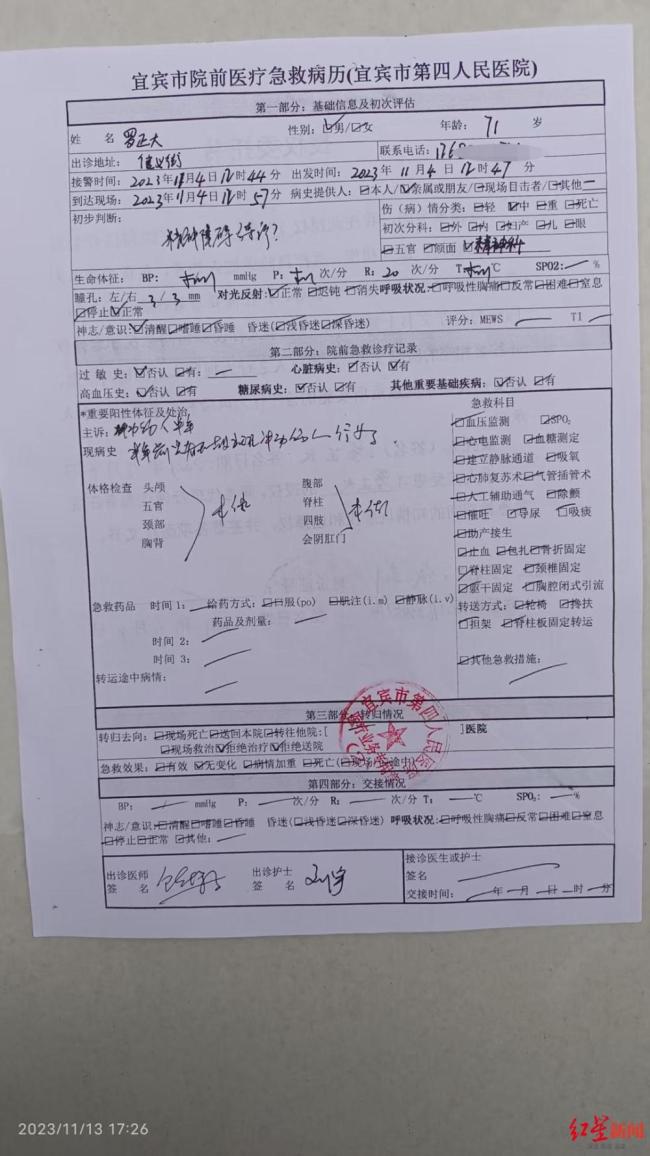 宜宾市院前医疗急救病历(宜宾市第四人民医院)
第一部分：基础信息及初次评估
姓 名 罗正大 性别：☑男/☐女 年龄：71 岁
出诊地址： 联系电话：1368
接警时间：2023年11月4日12时44分 出发时间：2023年11月4日12时47分
到达现场：2023年11月4日12时57分 病史提供人：☐本人/☑亲属或朋友/☐现场目击者/☐其他
初步判断： 精神障碍待诊？
伤（病）情分类：☐轻 ☑中 ☐重 ☐死亡
初次分科：☐外 ☐内 ☐妇产 ☐儿 ☐眼
☐五官 ☐颌面 ☑精神科
生命体征： BP： mmHg P： 次/分 R：20 次/分 T ℃ SPO2：— %
瞳孔：左/右 3/3 mm 对光反射：☑正常 ☐迟钝 ☐消失 呼吸状况：☐呼吸性胸痛☐反常☐困难☐窒息
☐停止☑正常
神志/意识：☑清醒☐嗜睡☐昏睡 昏迷(☐浅昏迷☐深昏迷) 评分：MEWS — TI —
第二部分：院前急救诊疗记录
过 敏 史：☑否认☐有：— 心脏病史：☐否认 ☑有
高血压史：☑否认☐有 糖尿病史：☑否认☐有 其他重要基础疾病：☑否认☐有
*重要阳性体征及处治
主诉：
现病史
体格检查 头颅 腹部
五官 脊柱
颈部 四肢
胸背 会阴肛门
急救药品 时间 1：— 给药方式：☐口服(po) ☐肌注(i.m) ☐静脉(i.v)
药品及剂量：—
时间 2：—
时间 3：—
转运途中病情：—
急救科目
☐血压监测 ☐SPO₂
☐心电监测 ☐血糖测定
☐建立静脉通道 ☐吸氧
☐心肺复苏术☐气管插管术
☐人工辅助通气 ☐除颤
☐催吐 ☐导尿 ☐吸痰
☐助产接生
☐止血 ☐包扎☐骨折固定
☐脊柱固定 ☐颈椎固定
☐躯干固定 ☐胸腔闭式引流
转送方式：☐轮椅 ☐搀扶
☐担架 ☐脊柱板固定转运
☐其他急救措施：—
第三部分：转归情况
转归去向：☐现场死亡☐送回本院☐转往他院:[ ]医院
☐现场救治☑拒绝治疗☑拒绝送院
急救效果：☐有效 ☑无变化 ☐病情加重 ☐死亡(☐现场☐途中)
宜宾市第四人民医院
第四部分：交接情况
BP： — mmHg P： — 次/分 R： — 次/分 T： —℃ SPO₂：—%
神志/意识:☐清醒☐嗜睡☐昏睡 昏迷(☐浅昏迷☐深昏迷) 呼吸状况:☐呼吸性胸痛☐反常☐困难☐窒息
☐停止☐正常 ☐其他：—
出诊医师 出诊护士 接诊医生或护士
签 名 签 名 签名
交接时间：—年—月—日—时—分
2023/11/13 17:26
红星新闻